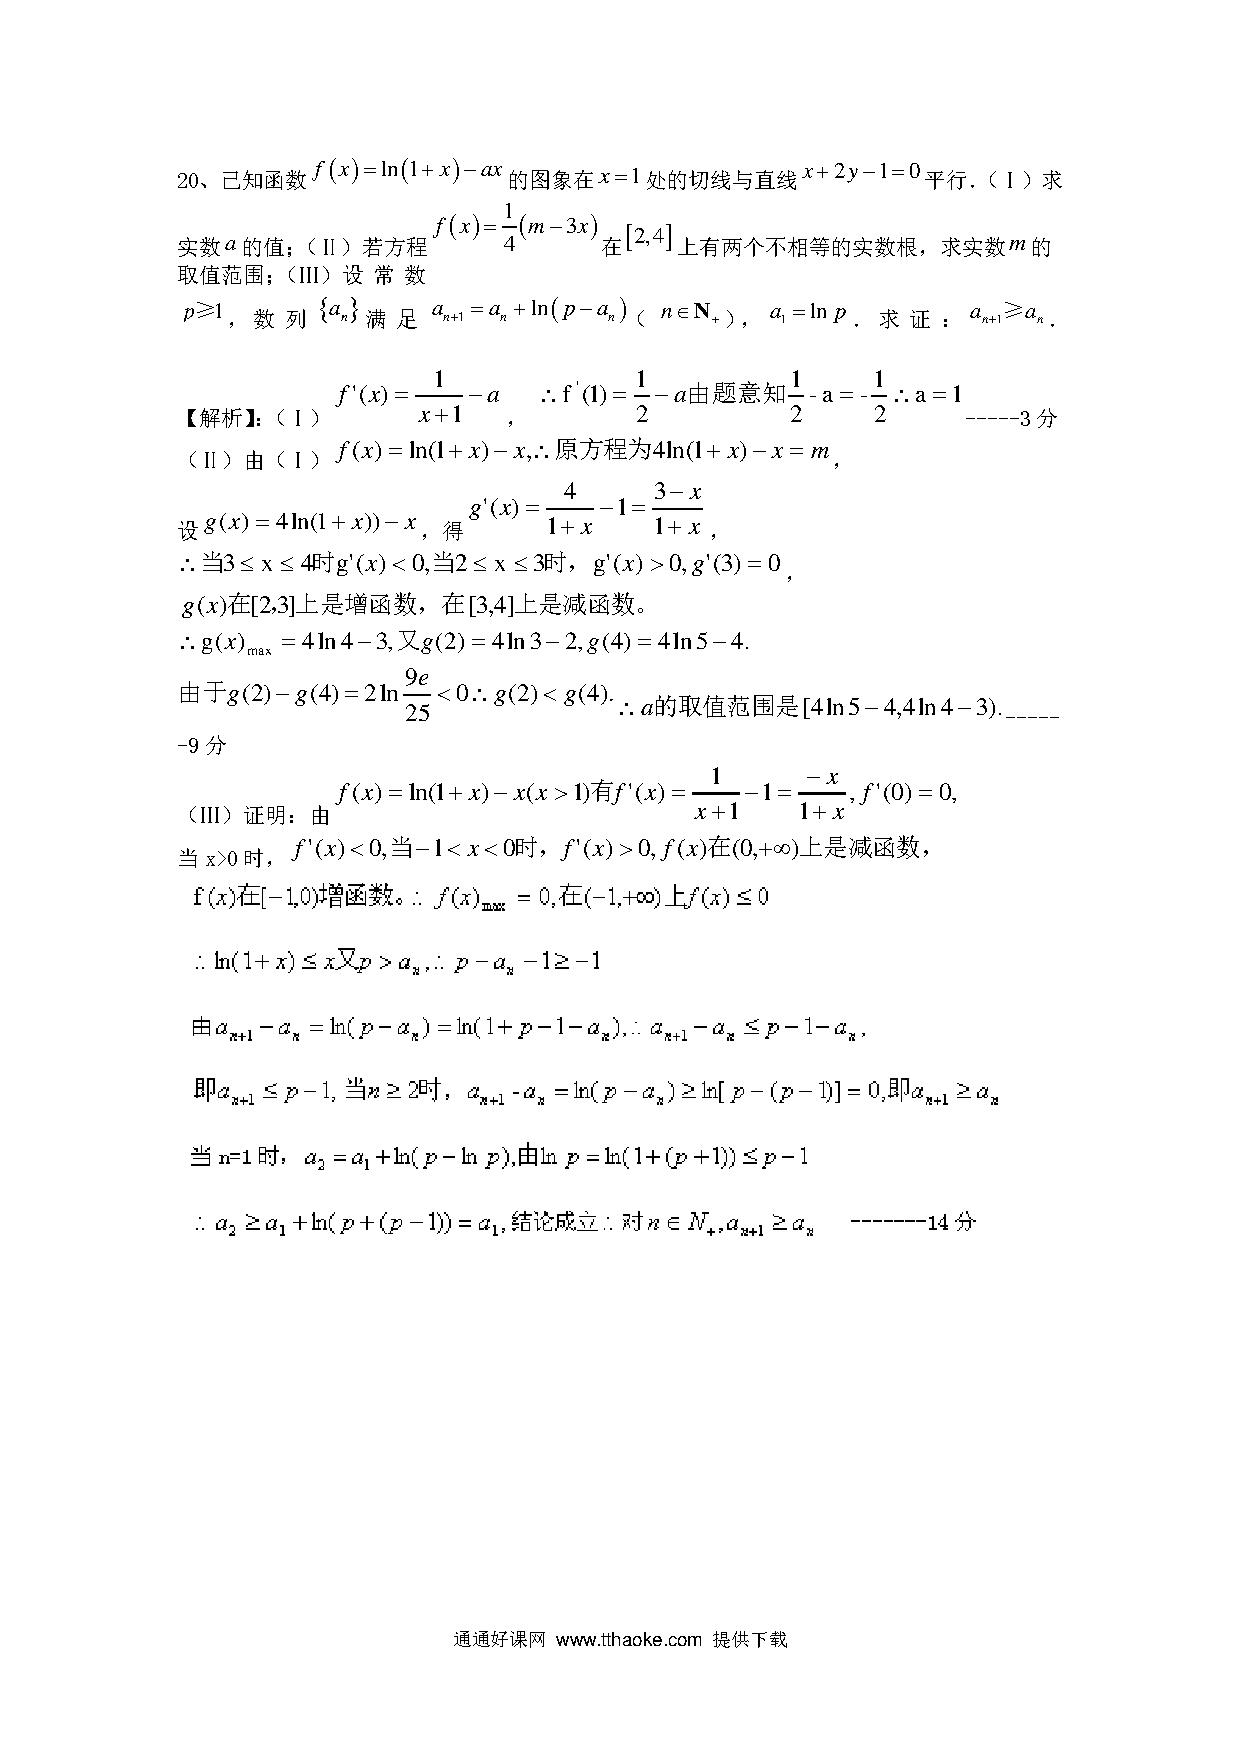 20、已知函数 f(x)=ln(1+x)−ax 的图象在 x=1 处的切线与直线 x+2y−1=0 平行.（Ⅰ）求
实数 a 的值；（Ⅱ）若方程 f(x)=1/4(m−3x) 在 [2,4] 上有两个不相等的实数根，求实数 m 的
取值范围；（Ⅲ）设 常 数
p≥1，数 列 {aₙ} 满 足 aₙ₊₁=aₙ+ln(p−aₙ)（ n∈N₊），a₁=ln p ．求 证 ：aₙ₊₁≥aₙ．
【解析】：（Ⅰ） f'(x)=1/(x+1)−a ， ∴f'(1)=1/2−a由题意知1/2-a=-1/2∴a=1 -----3分
（Ⅱ）由（Ⅰ） f(x)=ln(1+x)−x,∴原方程为4ln(1+x)−x=m，
设 g(x)=4ln(1+x))−x，得 g'(x)=4/(1+x)−1=(3−x)/(1+x)，
∴当3≤x≤4时g'(x)<0,当2≤x≤3时，g'(x)>0,g'(3)=0，
g(x)在[2,3]上是增函数，在[3,4]上是减函数。
∴g(x)max=4ln4−3,又g(2)=4ln3−2,g(4)=4ln5−4.
由于g(2)−g(4)=2ln 9e/25<0∴g(2)<g(4).∴a的取值范围是[4ln5−4,4ln4−3).-----
-9分
（Ⅲ）证明：由 f(x)=ln(1+x)−x(x>1)有f'(x)=1/(x+1)−1=−x/(1+x),f'(0)=0,
当 x>0 时， f'(x)<0,当−1<x<0时，f'(x)>0,f(x)在(0,+∞)上是减函数，
f(x)在[−1,0)增函数。∴ f(x)max=0,在(−1,+∞)上f(x)≤0
∴ln(1+x)≤x又p>aₙ,∴ p−aₙ−1≥−1
由aₙ₊₁−aₙ=ln(p−aₙ)=ln(1+p−1−aₙ),∴aₙ₊₁−aₙ≤p−1−aₙ,
即aₙ₊₁≤p−1,当n≥2时，aₙ₊₁-aₙ=ln(p−aₙ)≥ln[p−(p−1)]=0,即aₙ₊₁≥aₙ
当 n=1 时，a₂=a₁+ln(p−ln p),由ln p=ln(1+(p+1))≤p−1
∴a₂≥a₁+ln(p+(p−1))=a₁,结论成立∴对n∈N₊,aₙ₊₁≥aₙ -------14分
通通好课网 www.tthaoke.com 提供下载